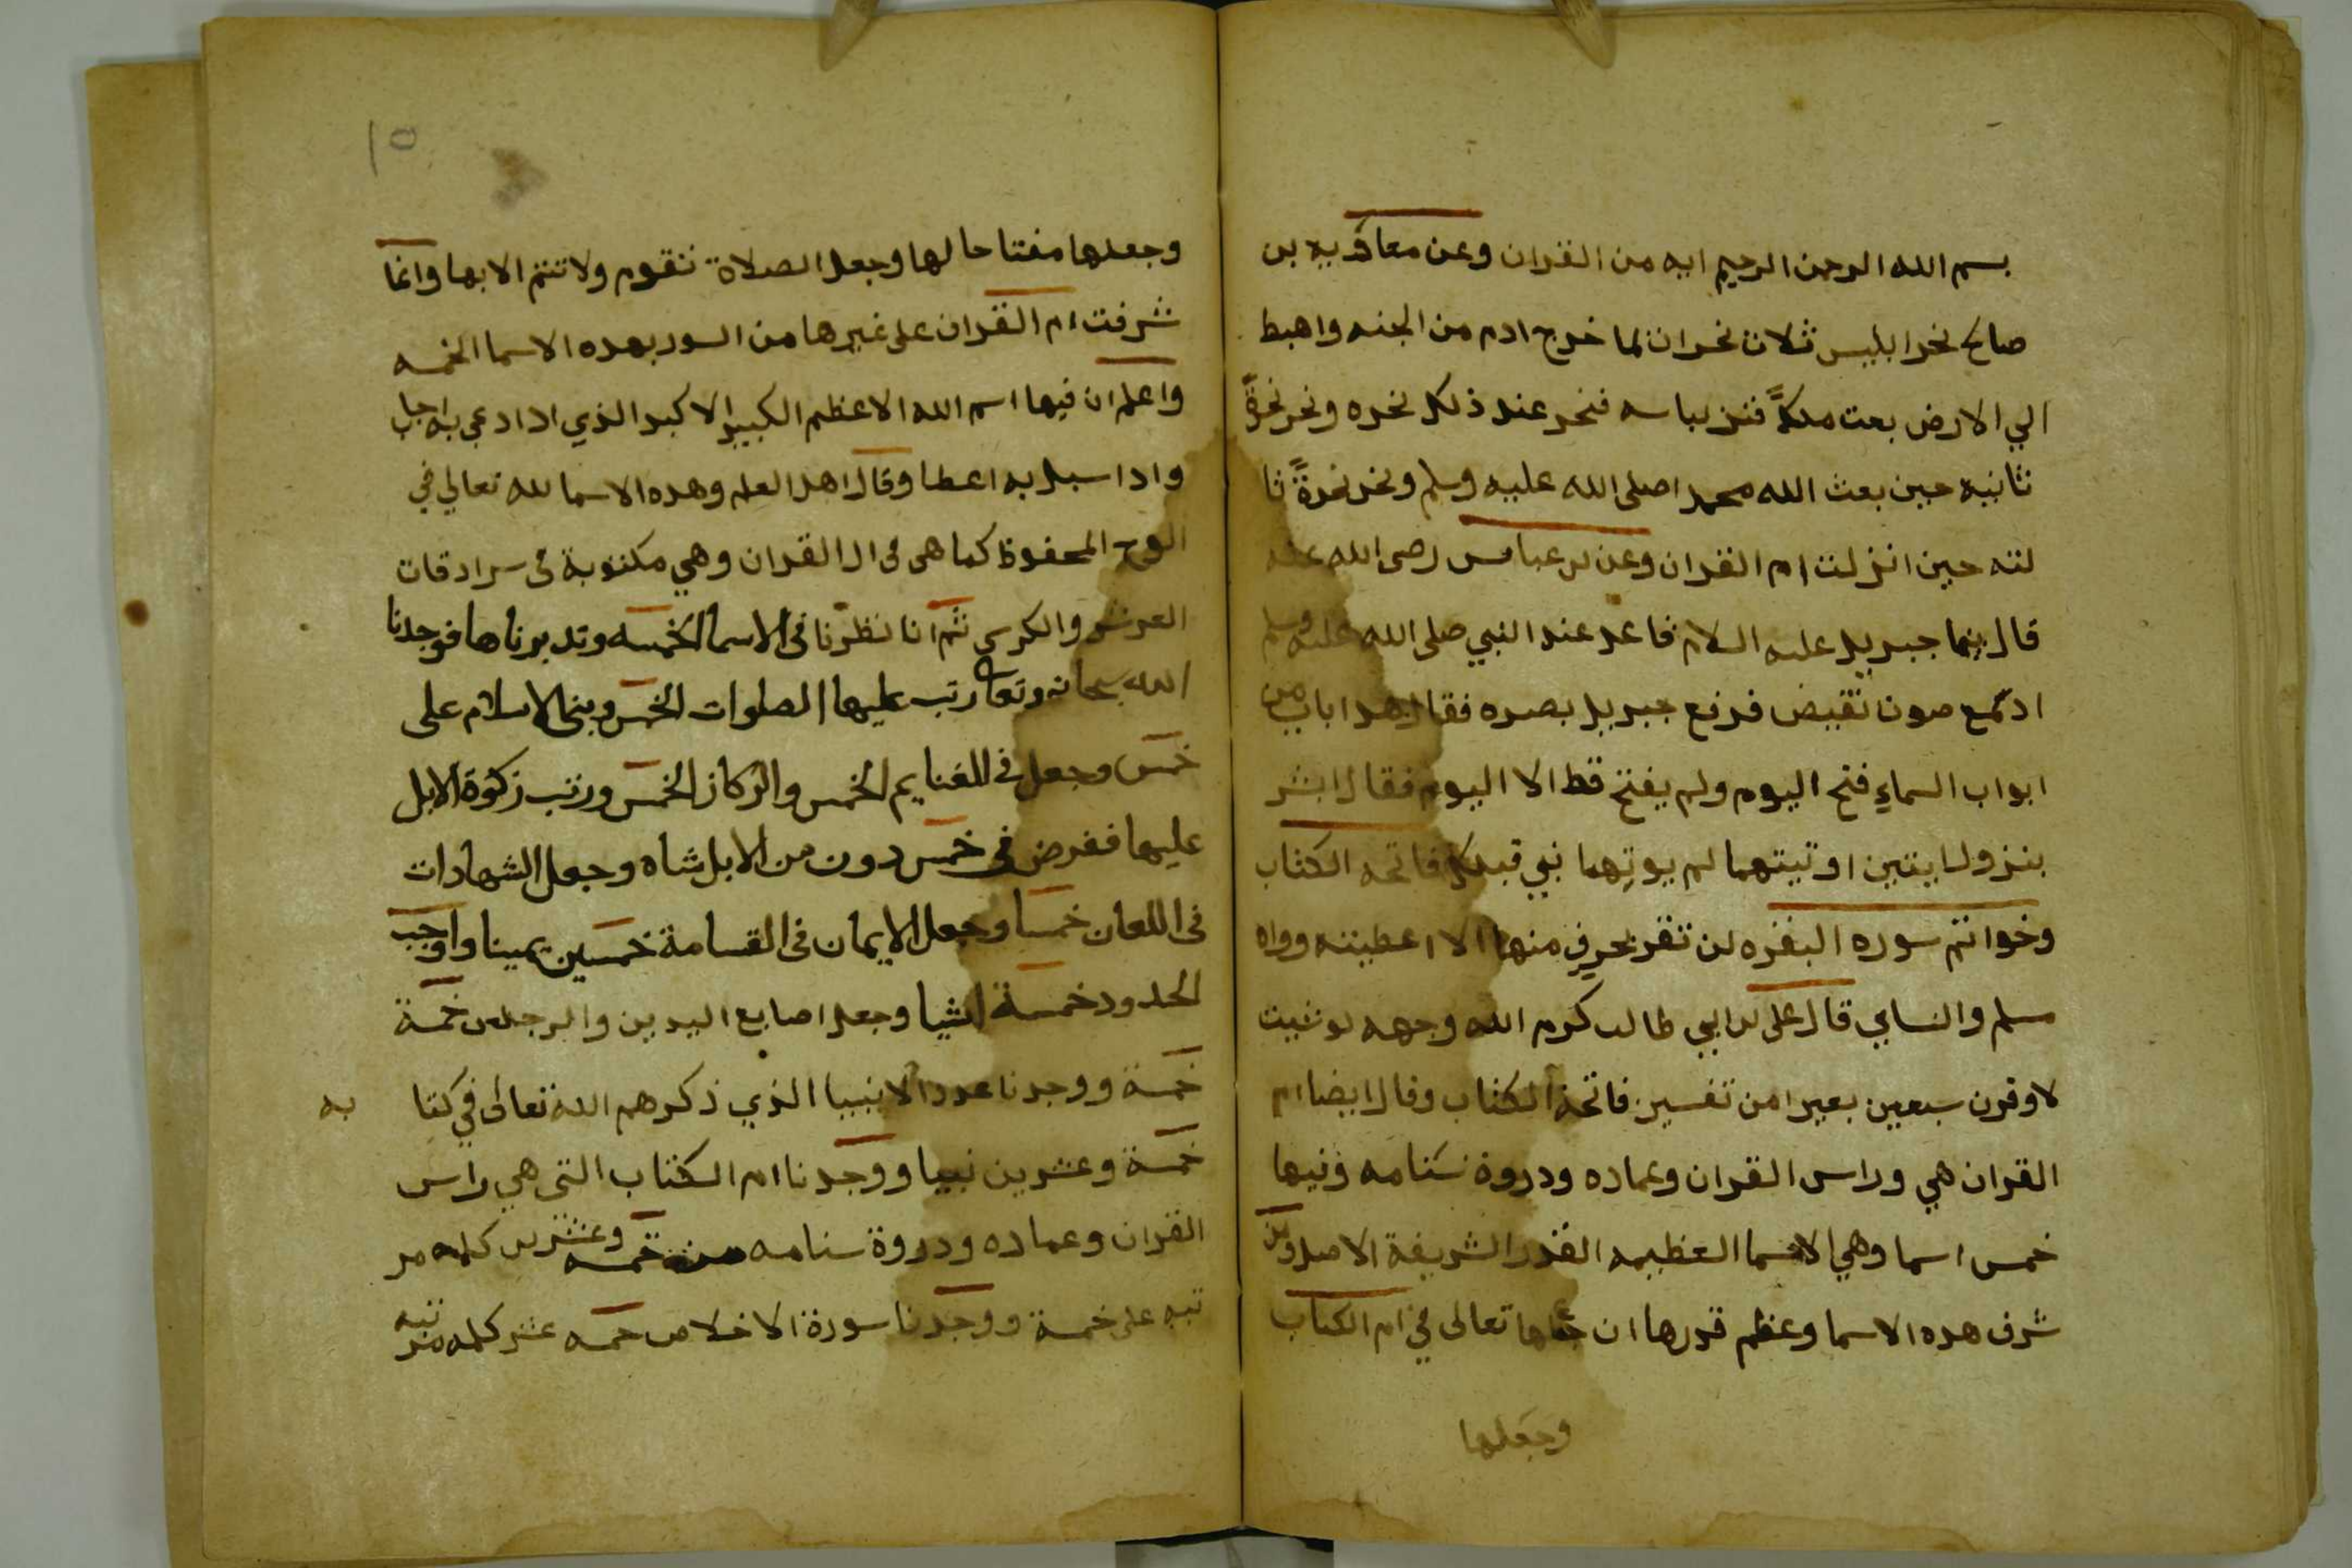 بسم الله الرحمن الرحيم ايه من القران وعن معاويه بن
صالح نخر ابليس ثلاث نخرات لما خرج ادم من الجنه واهبط
الي الارض بعث ملكاً فنخر عند ذلك نخره ونخر نخرةً
ثانيه حين بعث الله محمدا صلى الله عليه وسلم ونخر نخرةً ثا
لثه حين انزلت ام القران وعن بن عباس رضى الله عنه
قال بينما جبريل عليه السلام قاعد عند النبي صلى الله عليه وسلم
اذ سمع صوت نقيض فرفع جبريل بصره فقال هدا باب من
ابواب السماءِ فتح اليوم ولم يفتح قط الا اليوم فقال ابشر
بنزول ايتين اوتيتهما لم يوتِهما نبي قبلك فاتحه الكتاب
وخواتم سوره البقره لن تقر بحرفٍ منها الا اعطيته رواه
مسلم والنساي قال على بن ابي طالب كرم الله وجهه لو شيت
لاوقرن سبعين بعيرا من تفسير فاتحة الكتاب وقال ايضا ام
القران هي وراس القران وعماده ودروة سَنامه وفيها
خمس اسما وهي الاسما العظيمه القدر الشريفة الاصل ومن
شرف هده الاسما وعظم قدرها ان جعلها تعالى في ام الكتاب
وجعلها
١٥
وجعلها مفتاحا لها وجعل الصلاة تقوم ولا تتم الا بها وانما
شرفت ام القران على غيرها من السور بهده الاسما الخمسه
واعلم ان فيها اسم الله الاعظم الكبير الاكبر الذي ادا دعي به اجاب
وادا سيل به اعطا وقال اهل العلم وهده الاسما لله تعالي في
اللوح المحفوظ كما هى فى ال القران وهي مكتوبة فى سرادقات
العرش والكرسى ثم انا نظرنا فى الاسما الخمسه وتدبرناها فوجدنا
الله سبحانه وتعالى رتب عليها الصلوات الخمس وبنى الاسلام على
خمس وجعل فى الغنايم الخمس والركاز الخمس ورتب زكوة الابل
عليها ففرض فى خمس دون من الابل شاه وجعل الشهادات
فى اللعان خمسا وجعل الايمان فى القسامة خمسين يمينا واوجب
الحدود خمسة اشيا وجعل اصابع اليدين والرجلين خمسة
خمسة ووجدنا عدد الانبيا الذي ذكرهم الله تعالى في كتا
به
خمسة وعشرين نبيا ووجدنا ام الكتاب التي هي راس
القران وعماده ودروة سنامه خمسه وعشرين كلمه مر
تبه على خمسة ووجدنا سورة الاخلاص خمسه عشر كلمه مرتبه